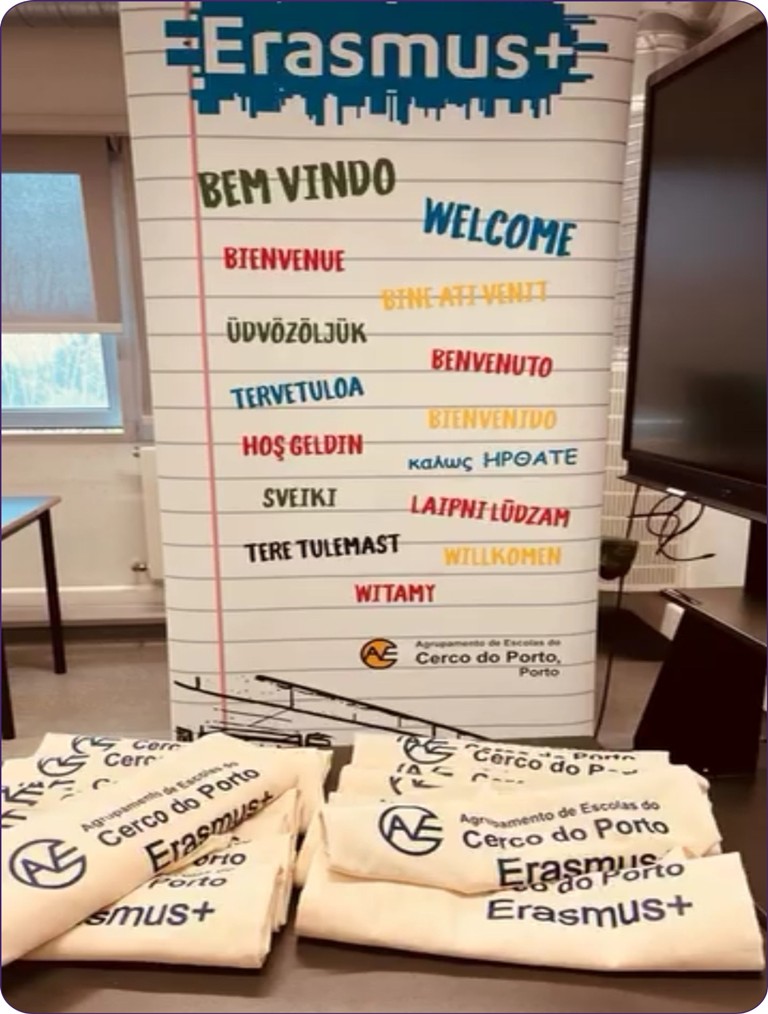 Erasmus+
BEM VINDO
WELCOME
BIENVENUE
BINE ATI VENIT
ÜDVÖZÖLJÜK
BENVENUTO
TERVETULOA
BIENVENIDO
HOŞ GELDIN
καλως ΗΡΘΑΤΕ
SVEIKI
LAIPNI LŪDZAM
TERE TULEMAST
WILLKOMEN
WITAMY
AVE Agrupamento de Escolas do
Cerco do Porto,
Porto
Cerco
Cerco
Agrupamento de Escolas do
Cerco do Porto
Erasmus+
Porto
Porto
smus+
Cerco do P
Agrupamento de Escolas do
Cerco do Porto
Erasmus
co do Porto
Erasmus+